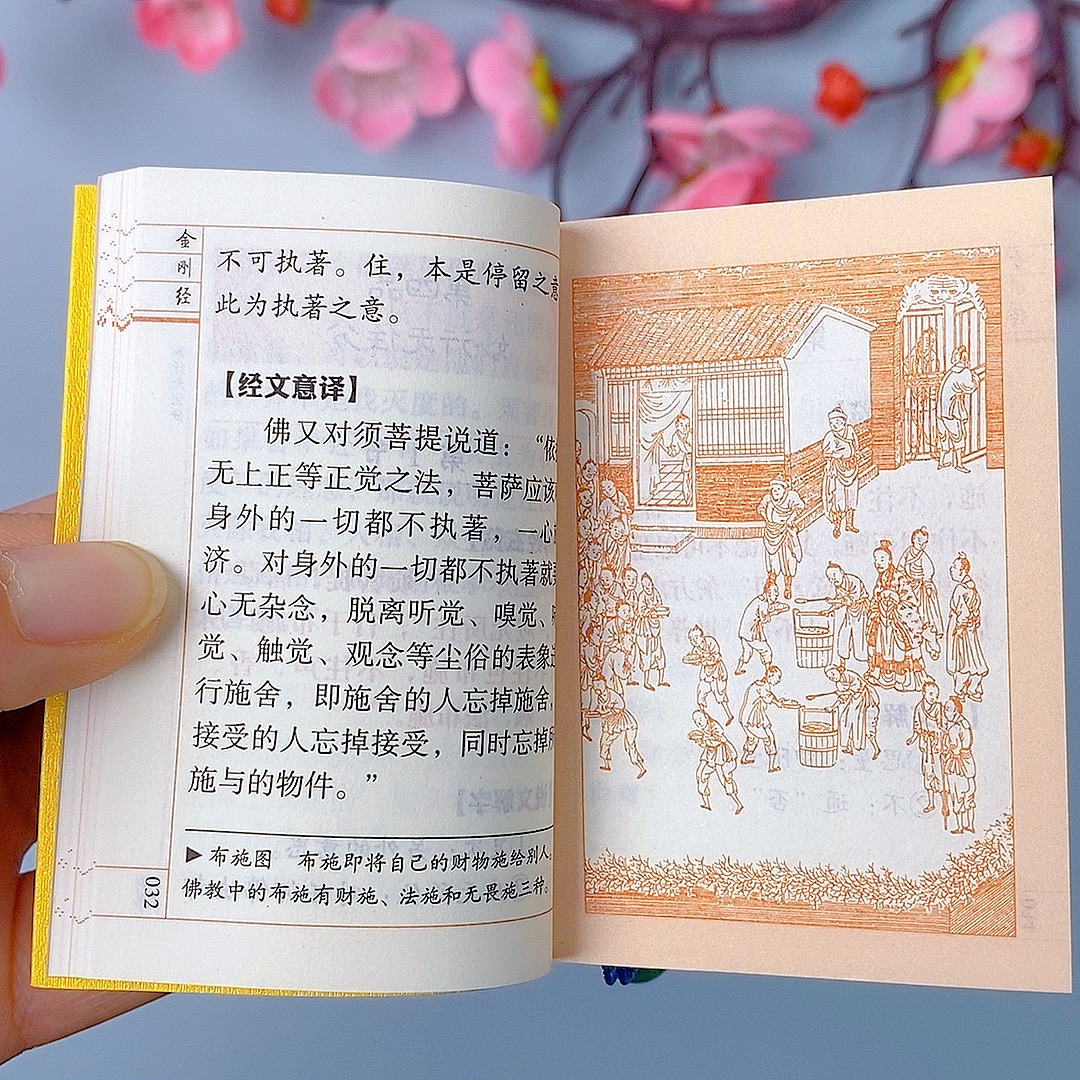 金刚经
不可执著。住，本是停留之意
此为执著之意。
【经文意译】
佛又对须菩提说道：“依
无上正等正觉之法，菩萨应该
身外的一切都不执著，一心
济。对身外的一切都不执著就
心无杂念，脱离听觉、嗅觉、
觉、触觉、观念等尘俗的表象
行施舍，即施舍的人忘掉施舍，
接受的人忘掉接受，同时忘掉
施与的物件。”
▶布施图 布施即将自己的财物施给别人。
佛教中的布施有财施、法施和无畏施三种。
032